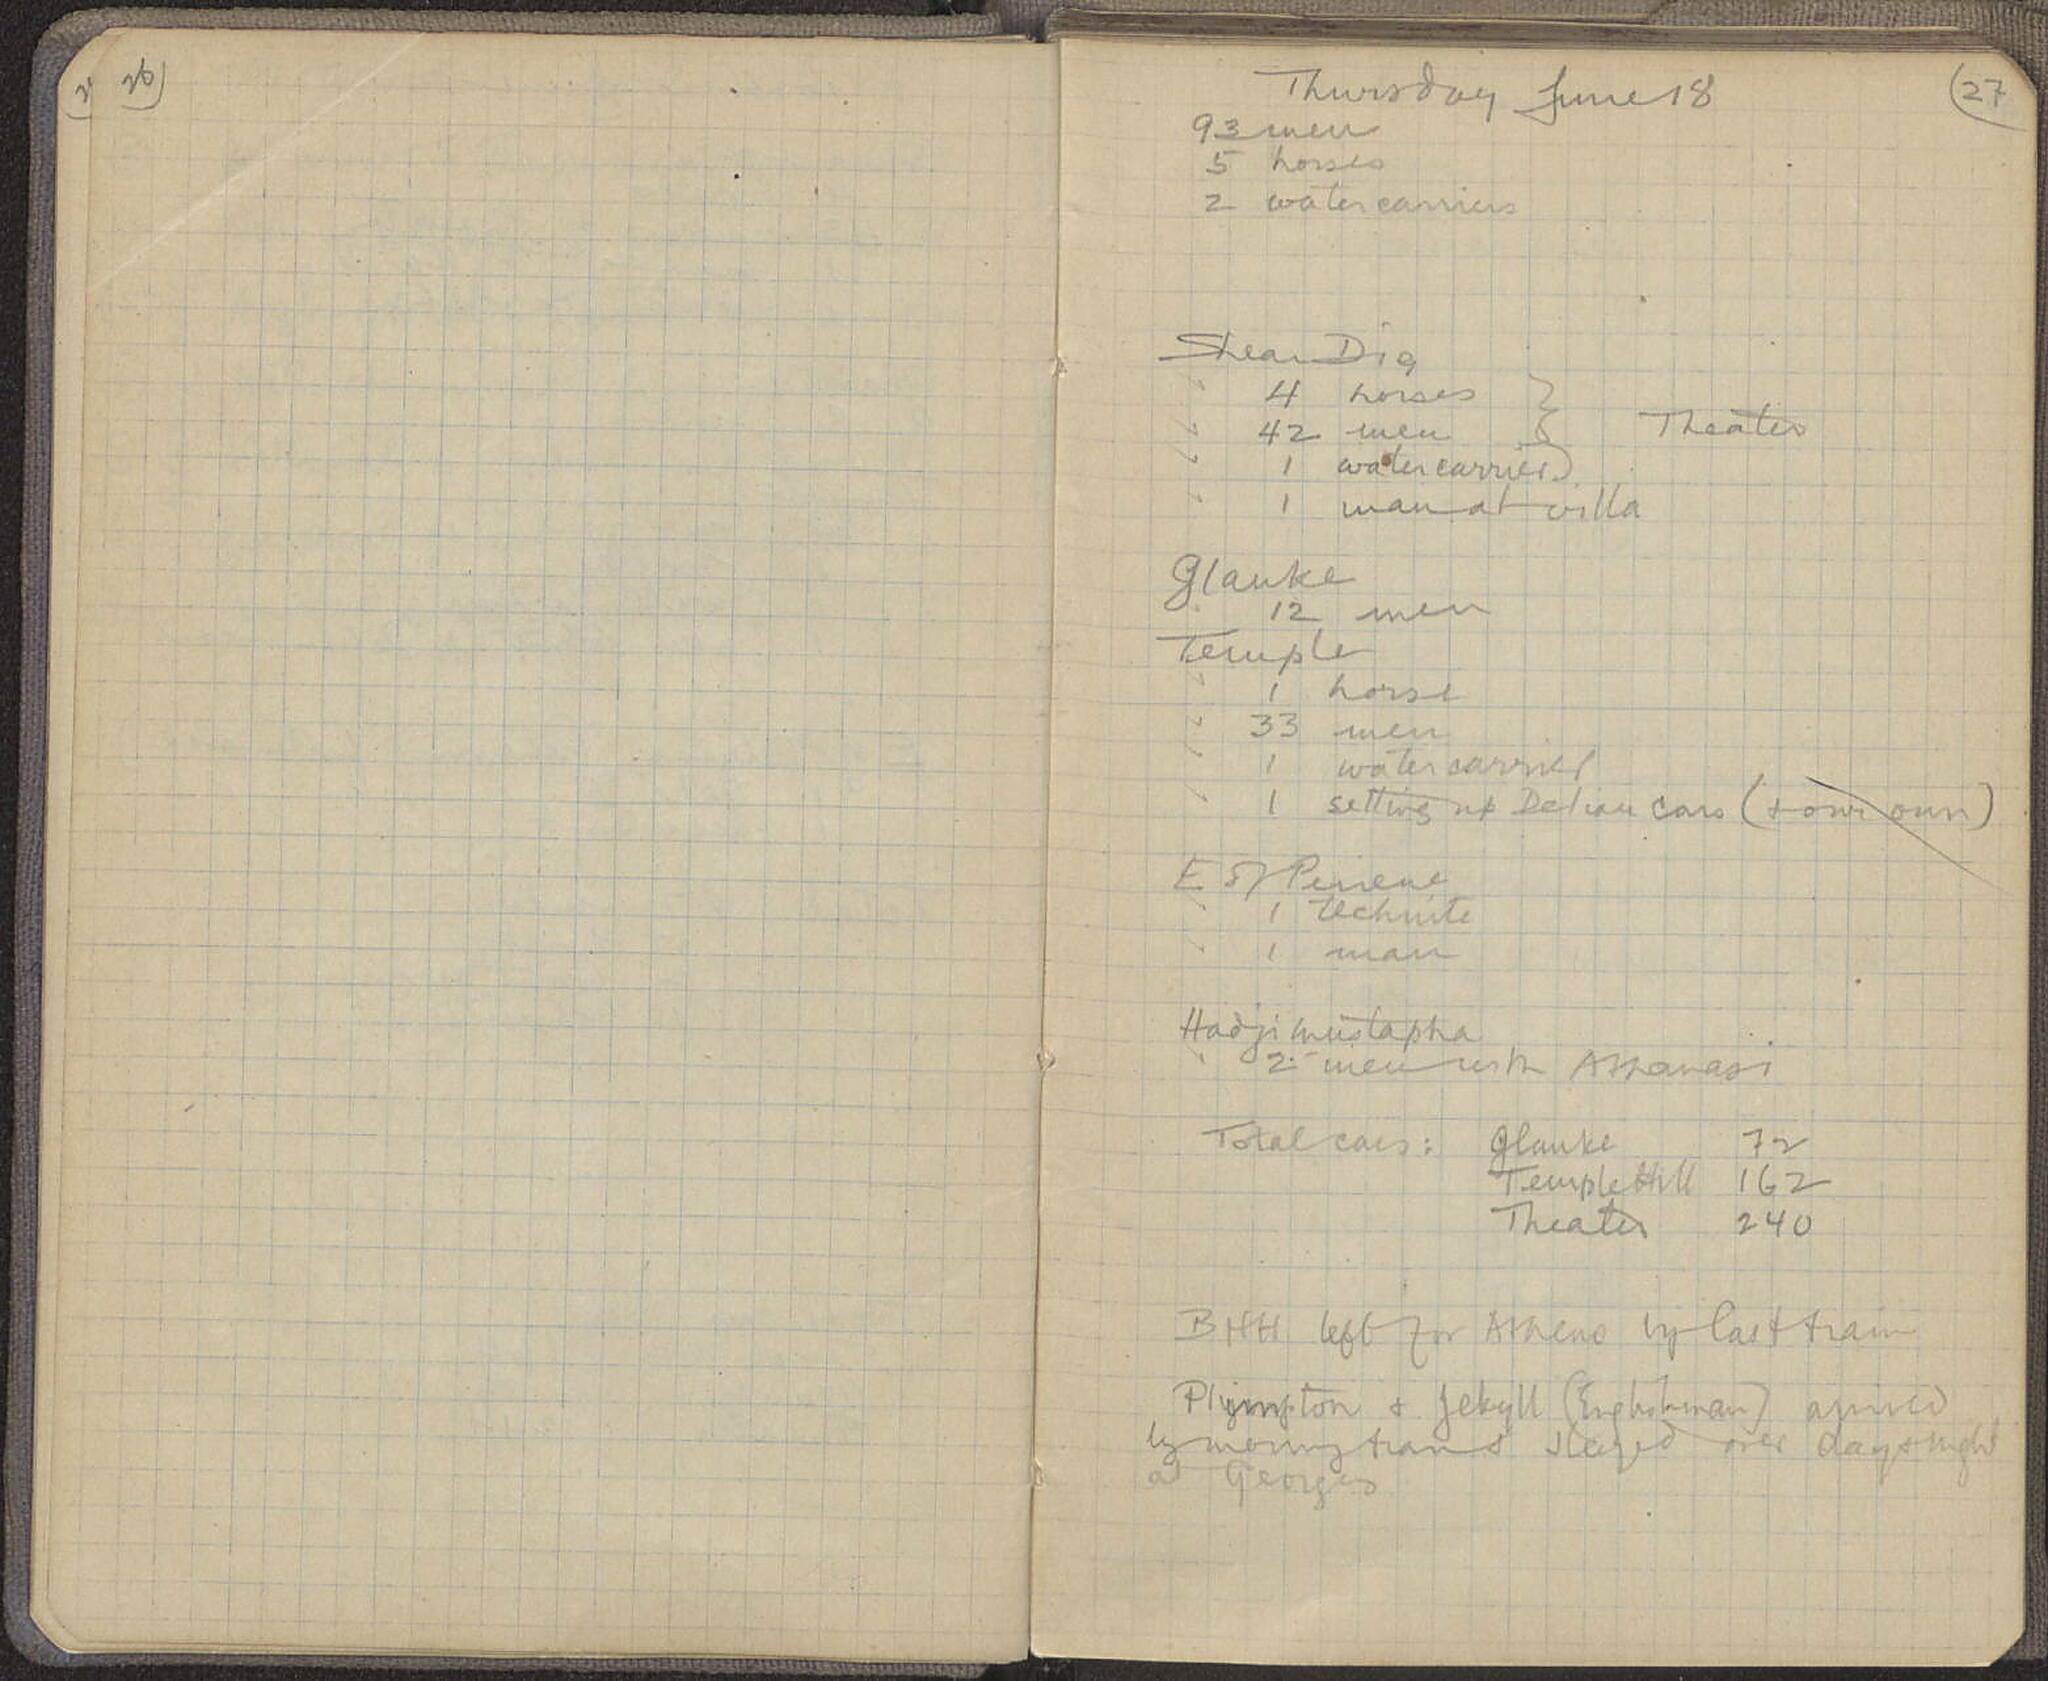 26)
Thursday June 18
(27
93 men
5 horses
2 watercarriers
Shear Dig
4 horses
42 men
Theater
1 watercarrier
1 man at villa
Glauke
12 men
Temple
1 horse
33 men
1 watercarrier
1 setting up Delian cars (+ our own)
E of Peirene
1 technite
1 man
Hadji Mustapha
2 men with Athanasi
Total cars: Glauke 72
Temple Hill 162
Theater 240
BHH left for Athens by last train
Plympton & Jekyll (Englishman) arrived
by morning train & stayed over day & night
at Georges